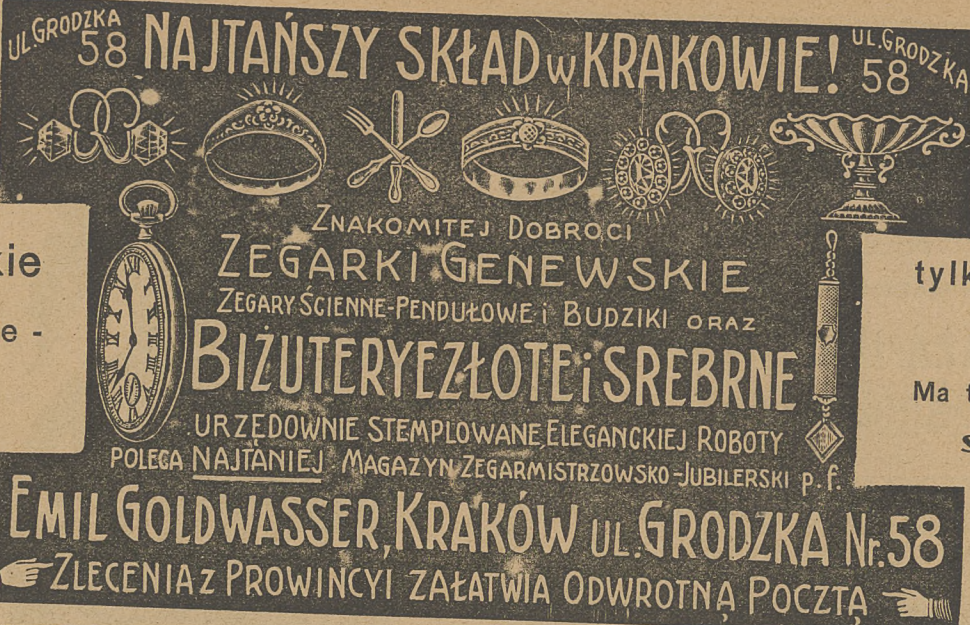 UL. GRODZKA 58
NAJTAŃSZY SKŁAD w KRAKOWIE!
UL. GRODZKA 58
ZNAKOMITEJ DOBROCI
ZEGARKI GENEWSKIE
ZEGARY ŚCIENNE-PENDUŁOWE i BUDZIKI ORAZ
BIŻUTERYE ZŁOTE i SREBRNE
URZĘDOWNIE STEMPLOWANE ELEGANCKIEJ ROBOTY
POLECA NAJTANIEJ MAGAZYN ZEGARMISTRZOWSKO-JUBILERSKI p.f.
EMIL GOLDWASSER, KRAKÓW UL. GRODZKA Nr. 58
ZLECENIA z PROWINCYI ZAŁATWIA ODWROTNĄ POCZTĄ
kie
e -
tylk
Ma t